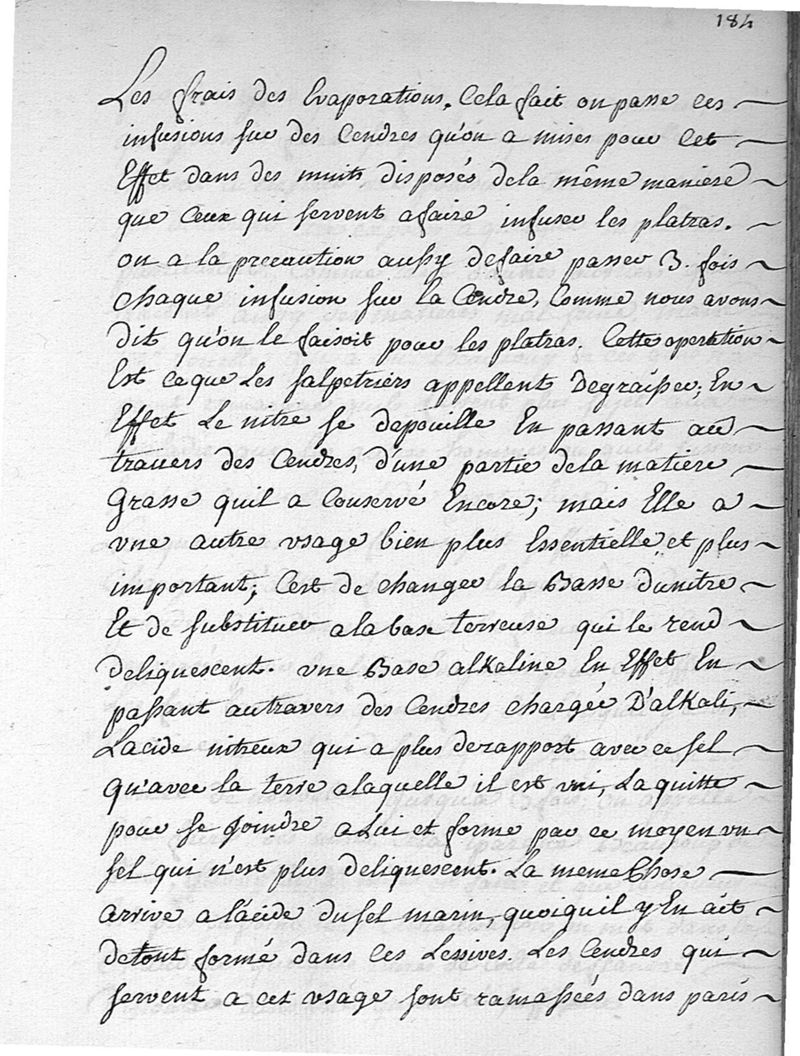 184
Les frais des Evaporations. Cela fait on passe ces
infusions sur des Cendres qu'on a mises pour cet
Effet dans des muits disposés dela même maniere
que Ceux qui servent afaire infuser les platras.
on a la precaution aussy defaire passer 3. fois
chaque infusion sur la Cendre, Comme nous avons
dit qu'on le faisoit pour les platras. Cette operation
Est ceque Les salpetriers appellent Degraisser; En
Effet Le nitre se depouille En passant au
travers des Cendres, d'une partie dela matiere
Grasse quil a Conservé Encore; mais Elle a
vne autre vsage bien plus Essentielle, et plus
important; C'est de changer la Basse dunitre
Et de substituer alabase terreuse qui le rend
deliquescent. vne Base alKaline En Effet En
passant autravers des Cendres chargée D'alKali,
L'acide nitreux qui a plus derapport avec ce sel
qu'avec la terre alaquelle il est vni, La quitte
pour se Joindre a Lui et forme par ce moyen vn
sel qui n'est plus deliquescent. La meme Chose
arrive a l'acide dusel marin, quoiquil y En ait
detout formé dans ces Lessives. Les Cendres qui
servent a cet vsage sont ramassées dans paris